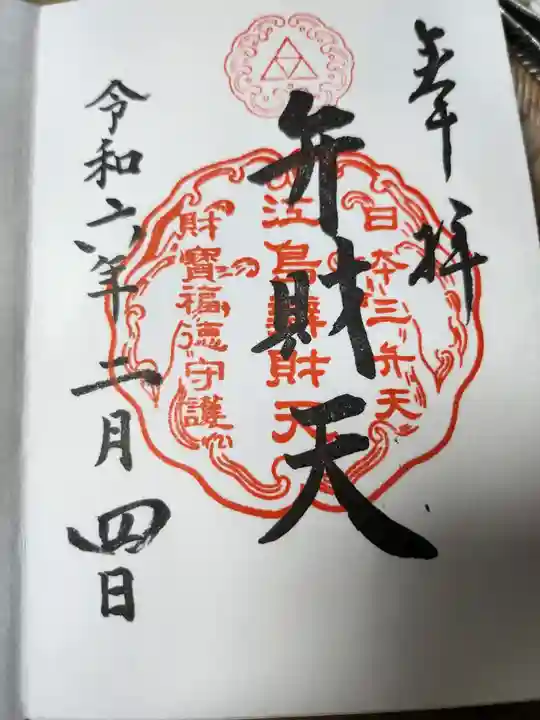 奉拝
日本三弁天
弁財天
江島辨財天
財寶福徳守護
令和六年二月四日